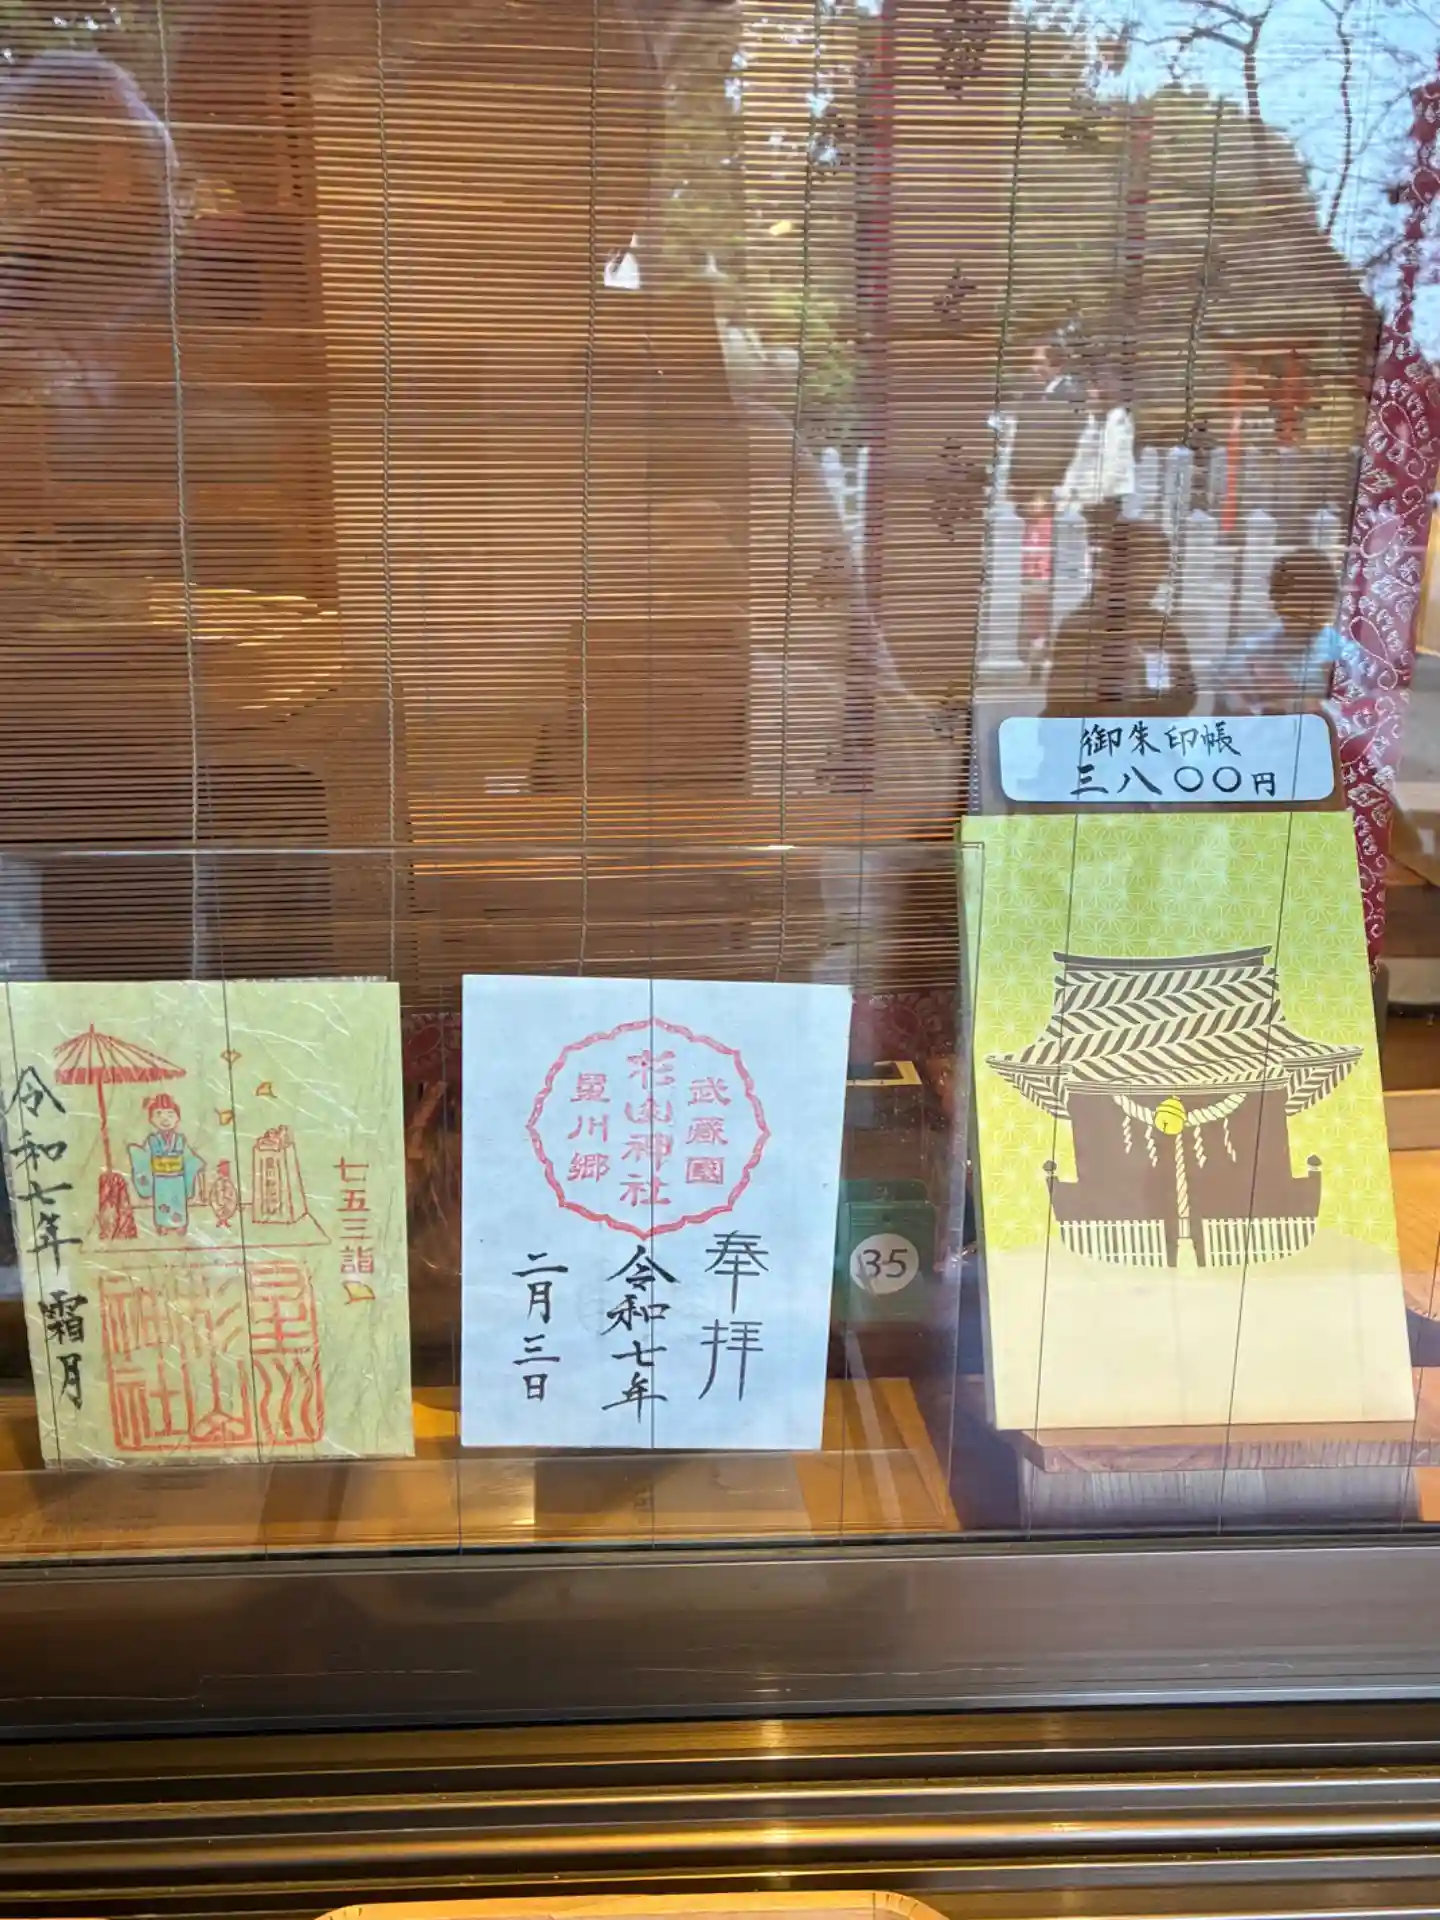 御朱印帳
三八〇〇円
七五三詣
令和七年 霜月
星川
杉山
神社
武蔵國
杉山神社
星川郷
奉拝
令和七年
二月三日
35